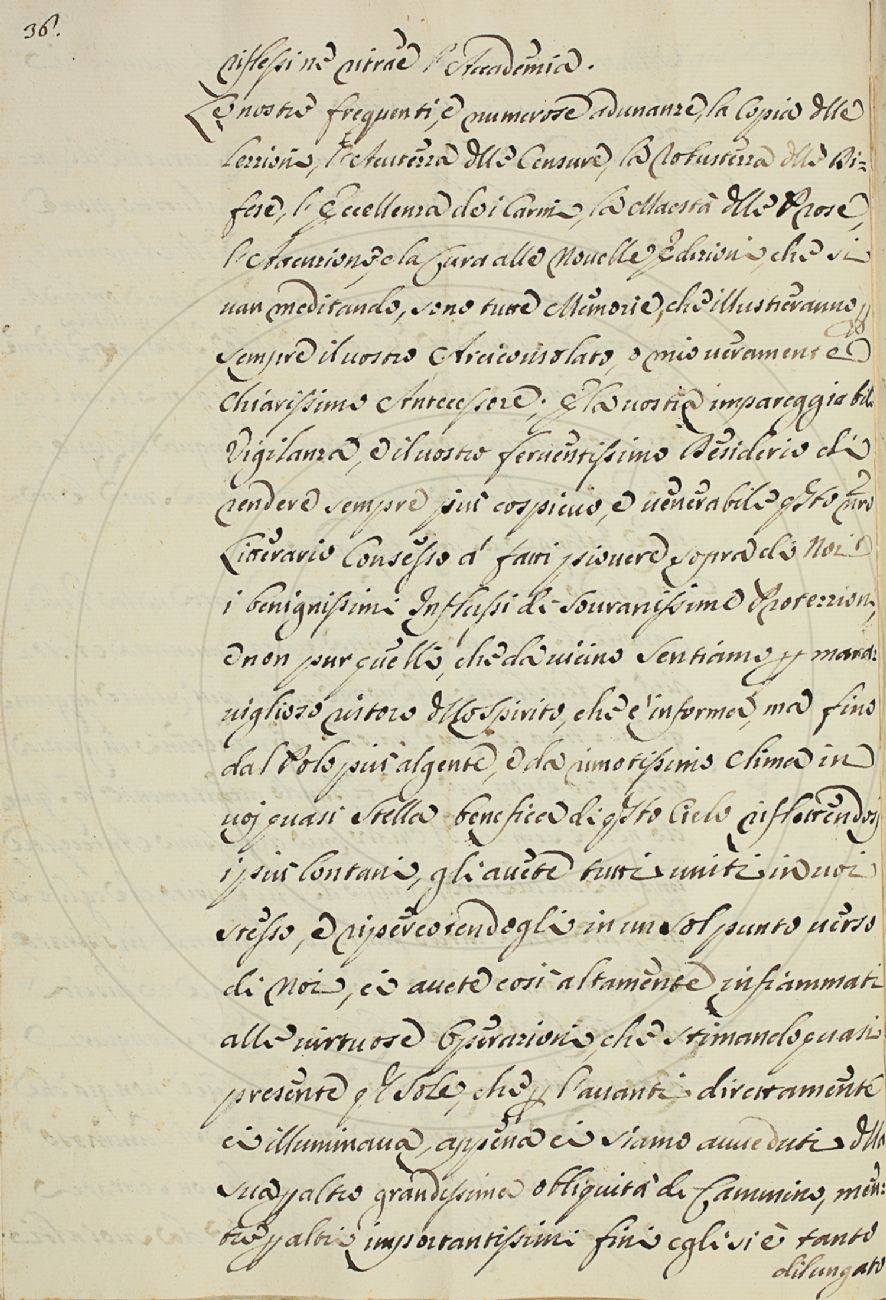 36.
riflessi ne ritrae l'Accademia.
Le nostre frequenti, e numerose adunanze, la Copia dlle
Lezzioni, l'Acutezza dlle Censure, la Robustezza dlle Di=
fese, l'Eccellenza dei Carmi, la Maestà dlle Prose,
l'Attenzione, e la Cura alle Novelle Edizioni, che si
van meditando, sono tutte Memorie, che illustreranno
sempre il vostro Arciconsolato, o mio veramente
Chiarissimo Antecessore. E la vostra impareggiabil
Vigilanza, e il vostro ferventissimo Desiderio di
rendere sempre più cospicuo, e venerabile qsto nro
Litterario Consesso à fatti piovere sopra di Noi
i benignissimi Influssi di Sovranissime Protezzioni,
e non pur quelli, che da vicino sentiamo p mara=
viglioso ristoro dllo Spirito, che c'informa, ma fino
dal Polo più algente, e da rimotissimo Clima in
voi quasi Stella benefica di qsto Cielo riflettendosi
i più lontani, gli avete tutti uniti in voi
stesso, e ripercotendogli in un sol punto verso
di Noi, ci avete così altamente infiammati
alle virtuose Operazioni, che stimando quasi
presente ql Sole, che p l'avanti direttamente
ci illuminava, appena ci siamo avveduti dlla
sua p altro grandissima obliquità di Cammino, men=
tre p altri importantissimi fini egli si è tanto
dilungato